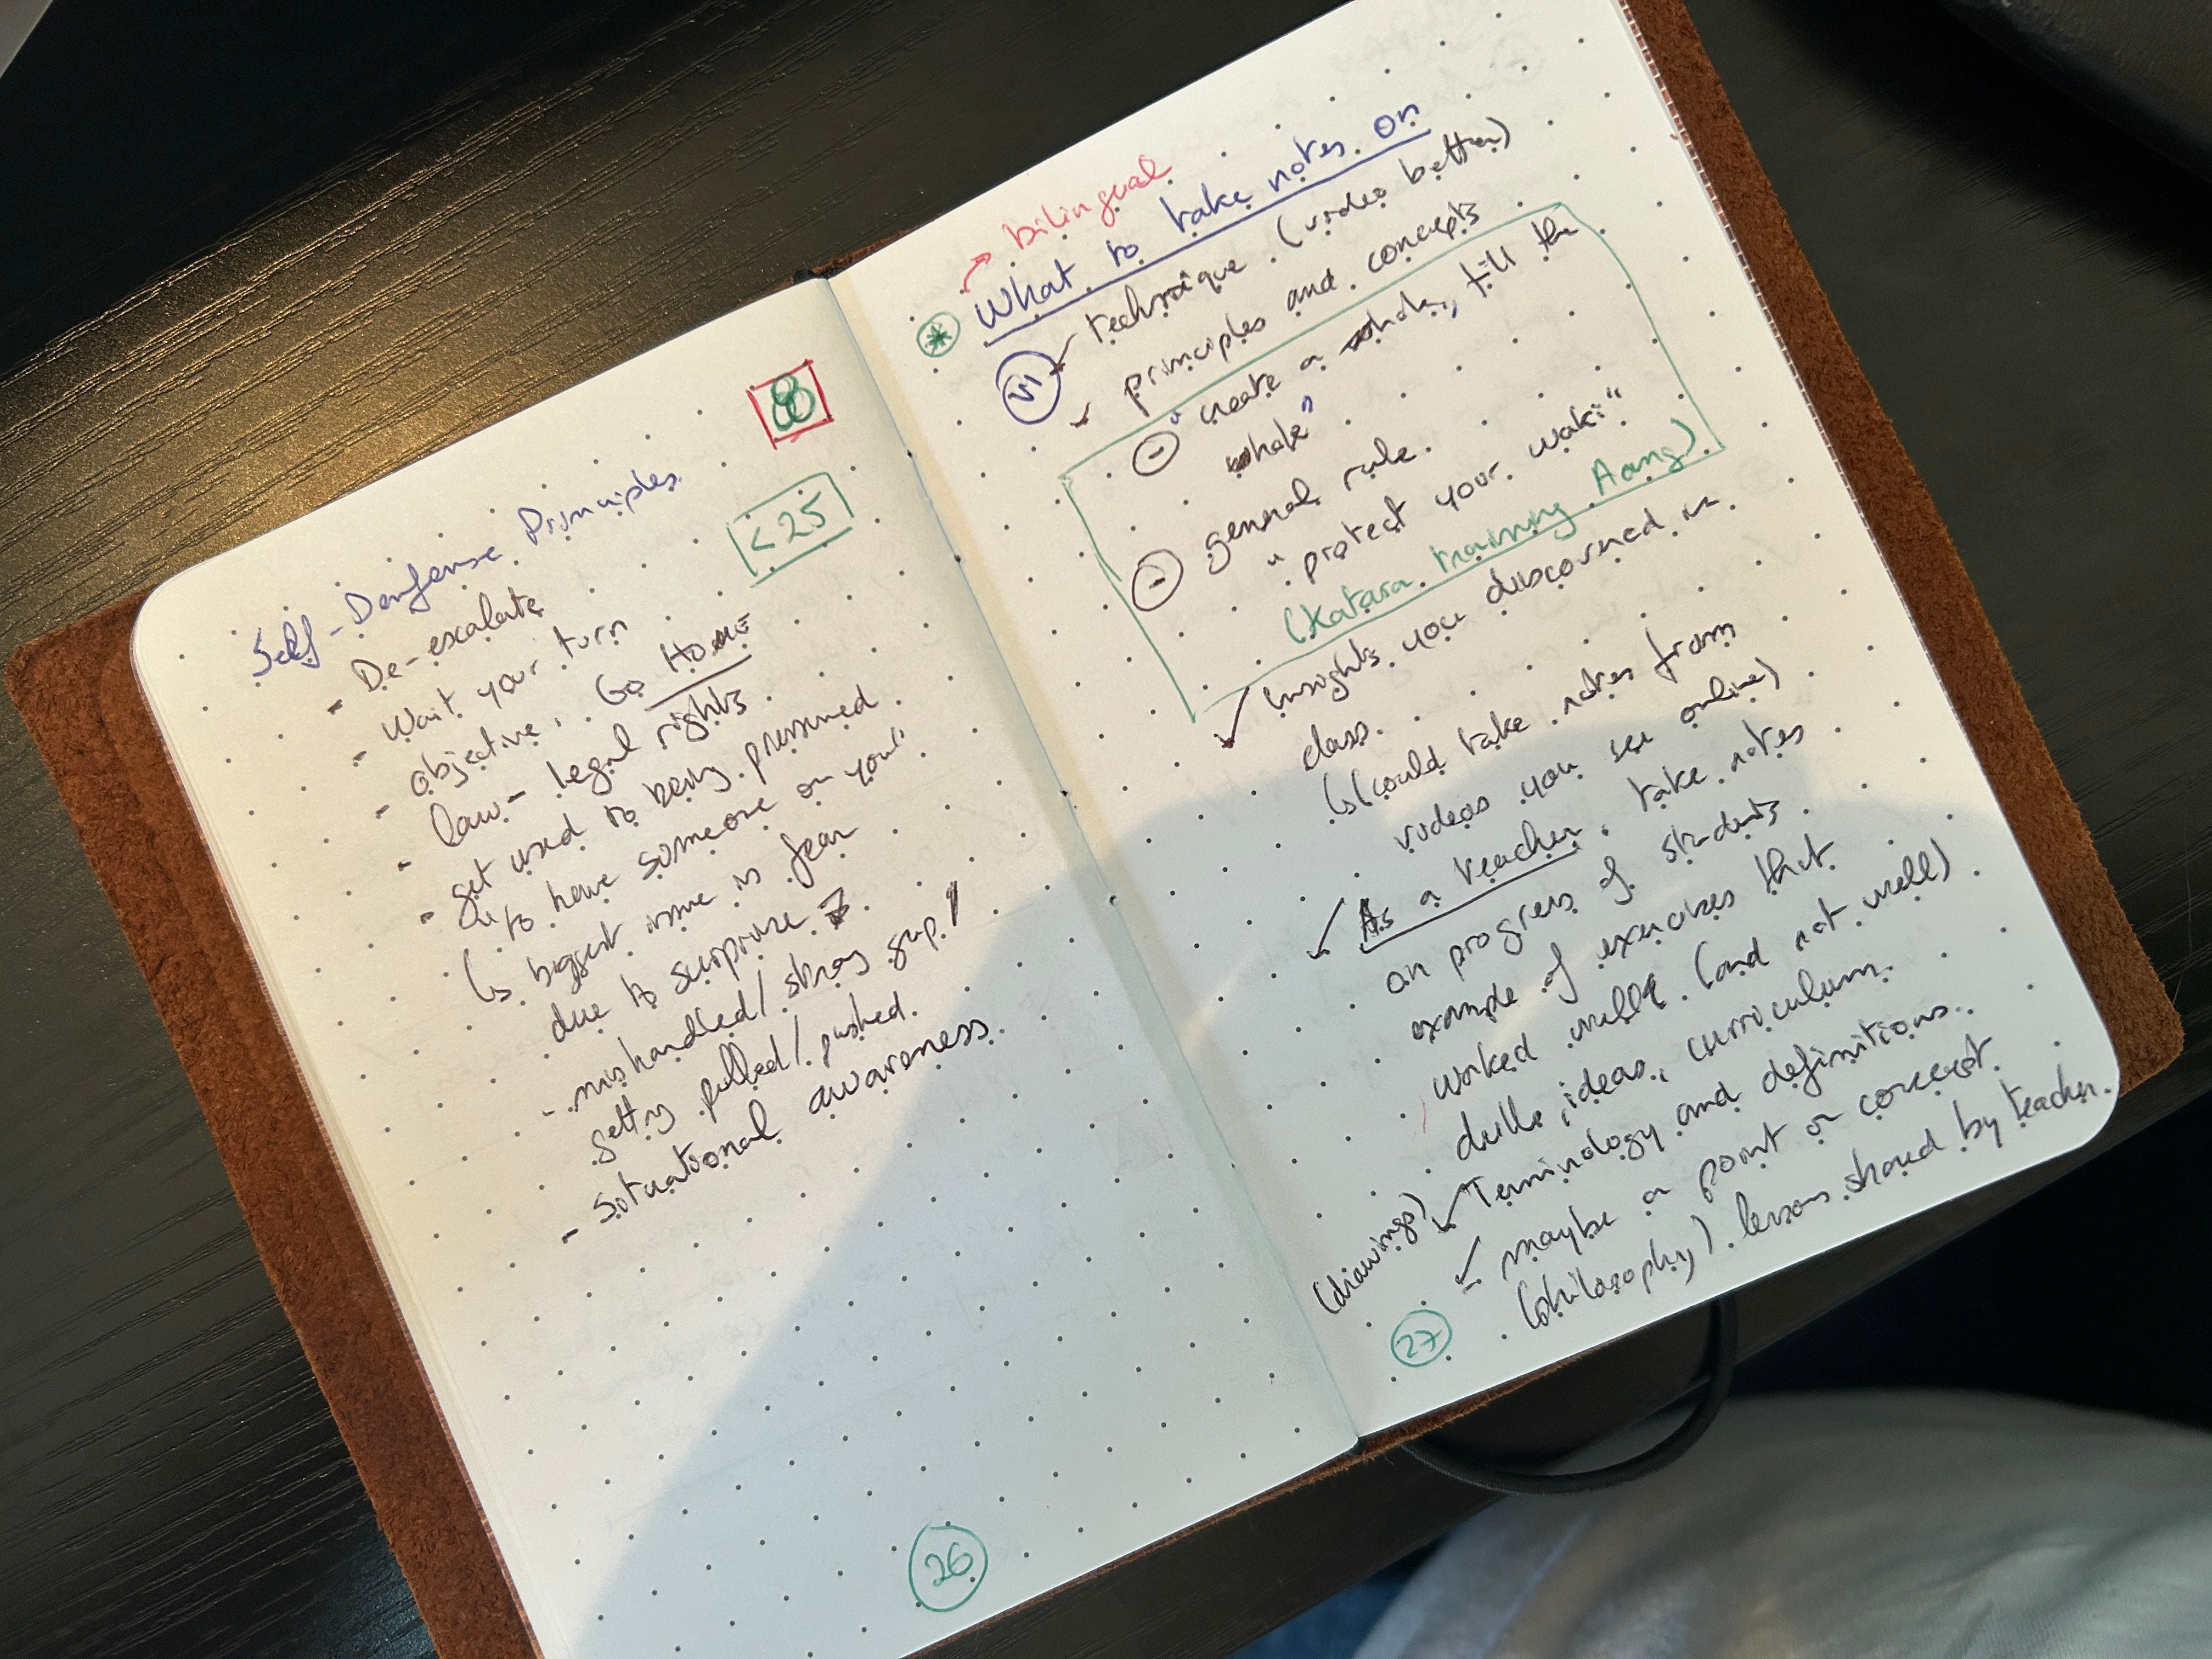 8
< 25
Self-Denfense Principles
- De-escalate
- Wait your turn
- objective, Go HOME
- law - legal rights
- get used to being pressured
to have someone on you!
biggest issue is fear
due to surprise
- mishandled / strong grap /
getting pulled / pushed.
- Situational awareness
26
bilingual
* What to take notes on
VI technique (video better)
principles and concepts
- "create a whole, till the
whole"
- general rule.
"protect your waki"
(Katara training Aang)
Insights you discovered in
class.
(could take notes from
videos you see online)
As a teacher, take notes
on progress of students
example of exercises that
worked well (and not well)
drills, ideas, curriculum.
Terminology and definitions.
(drawings)
maybe a point or concept
(philosophy) lessons shared by teacher.
27